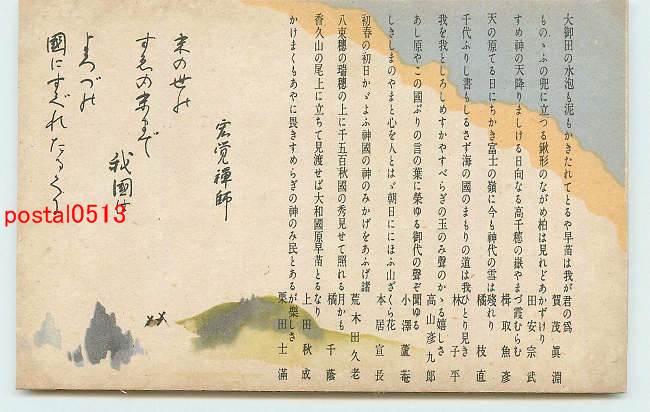 大御田の水泡も泥もかきたれてとるや早苗は我が君の為 賀茂眞淵
ものゝふの兜に立つる鍬形のながめ柏は見れどあかずけり 田安宗武
すめ神の天降りましける日向なる高千穂の嶽やまづ霞むらむ 楫取魚彦
天の原てる日にちかき富士の嶺に今も神代の雪は殘れり 橘枝直
千代ふりし書もしるさず海の國のまもりの道は我ひとり見き 林子平
我を我としろしめすかやすべらぎの玉のみ聲のかゝる嬉しさ 高山彦九郎
あし原やこの國ぶりの言の葉に榮ゆる御代の聲ぞ聞ゆる 小澤蘆菴
しきしまのやまと心を人とはゞ朝日ににほふ山ざくら花 本居宣長
初春の初日かゞよふ神國の神のみかげをあふげ諸 荒木田久老
八束穗の瑞穗の上に千五百秋國の秀見せて照れる月かも 橘千蔭
香久山の尾上に立ちて見渡せば大和國原早苗とるなり 上田秋成
かけまくもあやに畏きすめらぎの神のみ民とあるが樂しさ 栗田土滿
宏覚禅師
末の世の
すゑの末まで
我國は
よろづの
國にすぐれたる國
postal0513